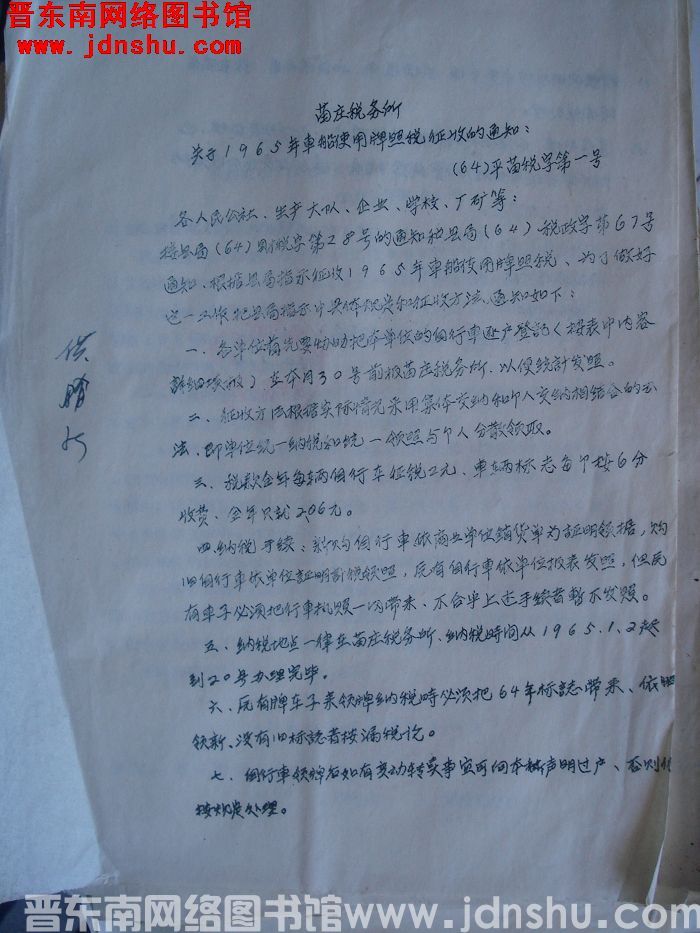 晋东南网络图书馆
www.jdnshu.com
苗庄税务所
关于1965年車船使用牌照税征收的通知：
（64）平苗税字第一号
各人民公社、生产大队、企业、学校、厂矿等：
接县局（64）财税字第28号的通知和县局（64）税政字第67号
通知、根据县局指示征收1965年車船使用牌照税、为了做好
这一工作把县局指示中具体规定和征收方法、通知如下：
一、各单位首先要协助把本单位的自行車逐户登記（按表中内容
詳細填报）在本月30号前报苗庄税务所、以便统計发照。
二、征收方法根据实际情况采用集体交纳和个人交纳相结合的办
法、即单位统一纳税和统一领照与个人分散领取。
三、税款全年每辆自行车征税2元、車辆标志每个按6分
收费、全年只就2.06元。
四、纳税手续：新购自行車依商业单位銷货单为証明领据，购
旧自行車依单位証明 税领照，原有自行車依单位报表发照，但原
有车子必须把行車执照一同带来、不合乎上述手续者暂不发照。
五、纳税地点一律在苗庄税务所、纳税时间从1965.1.2起
到20号办理完毕。
六、原有牌车子来领牌纳税時必须把64年标誌带来、依旧
领新、没有旧标誌者按漏税讫。
七、自行車领牌后如有变动转卖事宜可向本所声明过户、否则
按规定处理。
晋东南网络图书馆 www.jdnshu.com